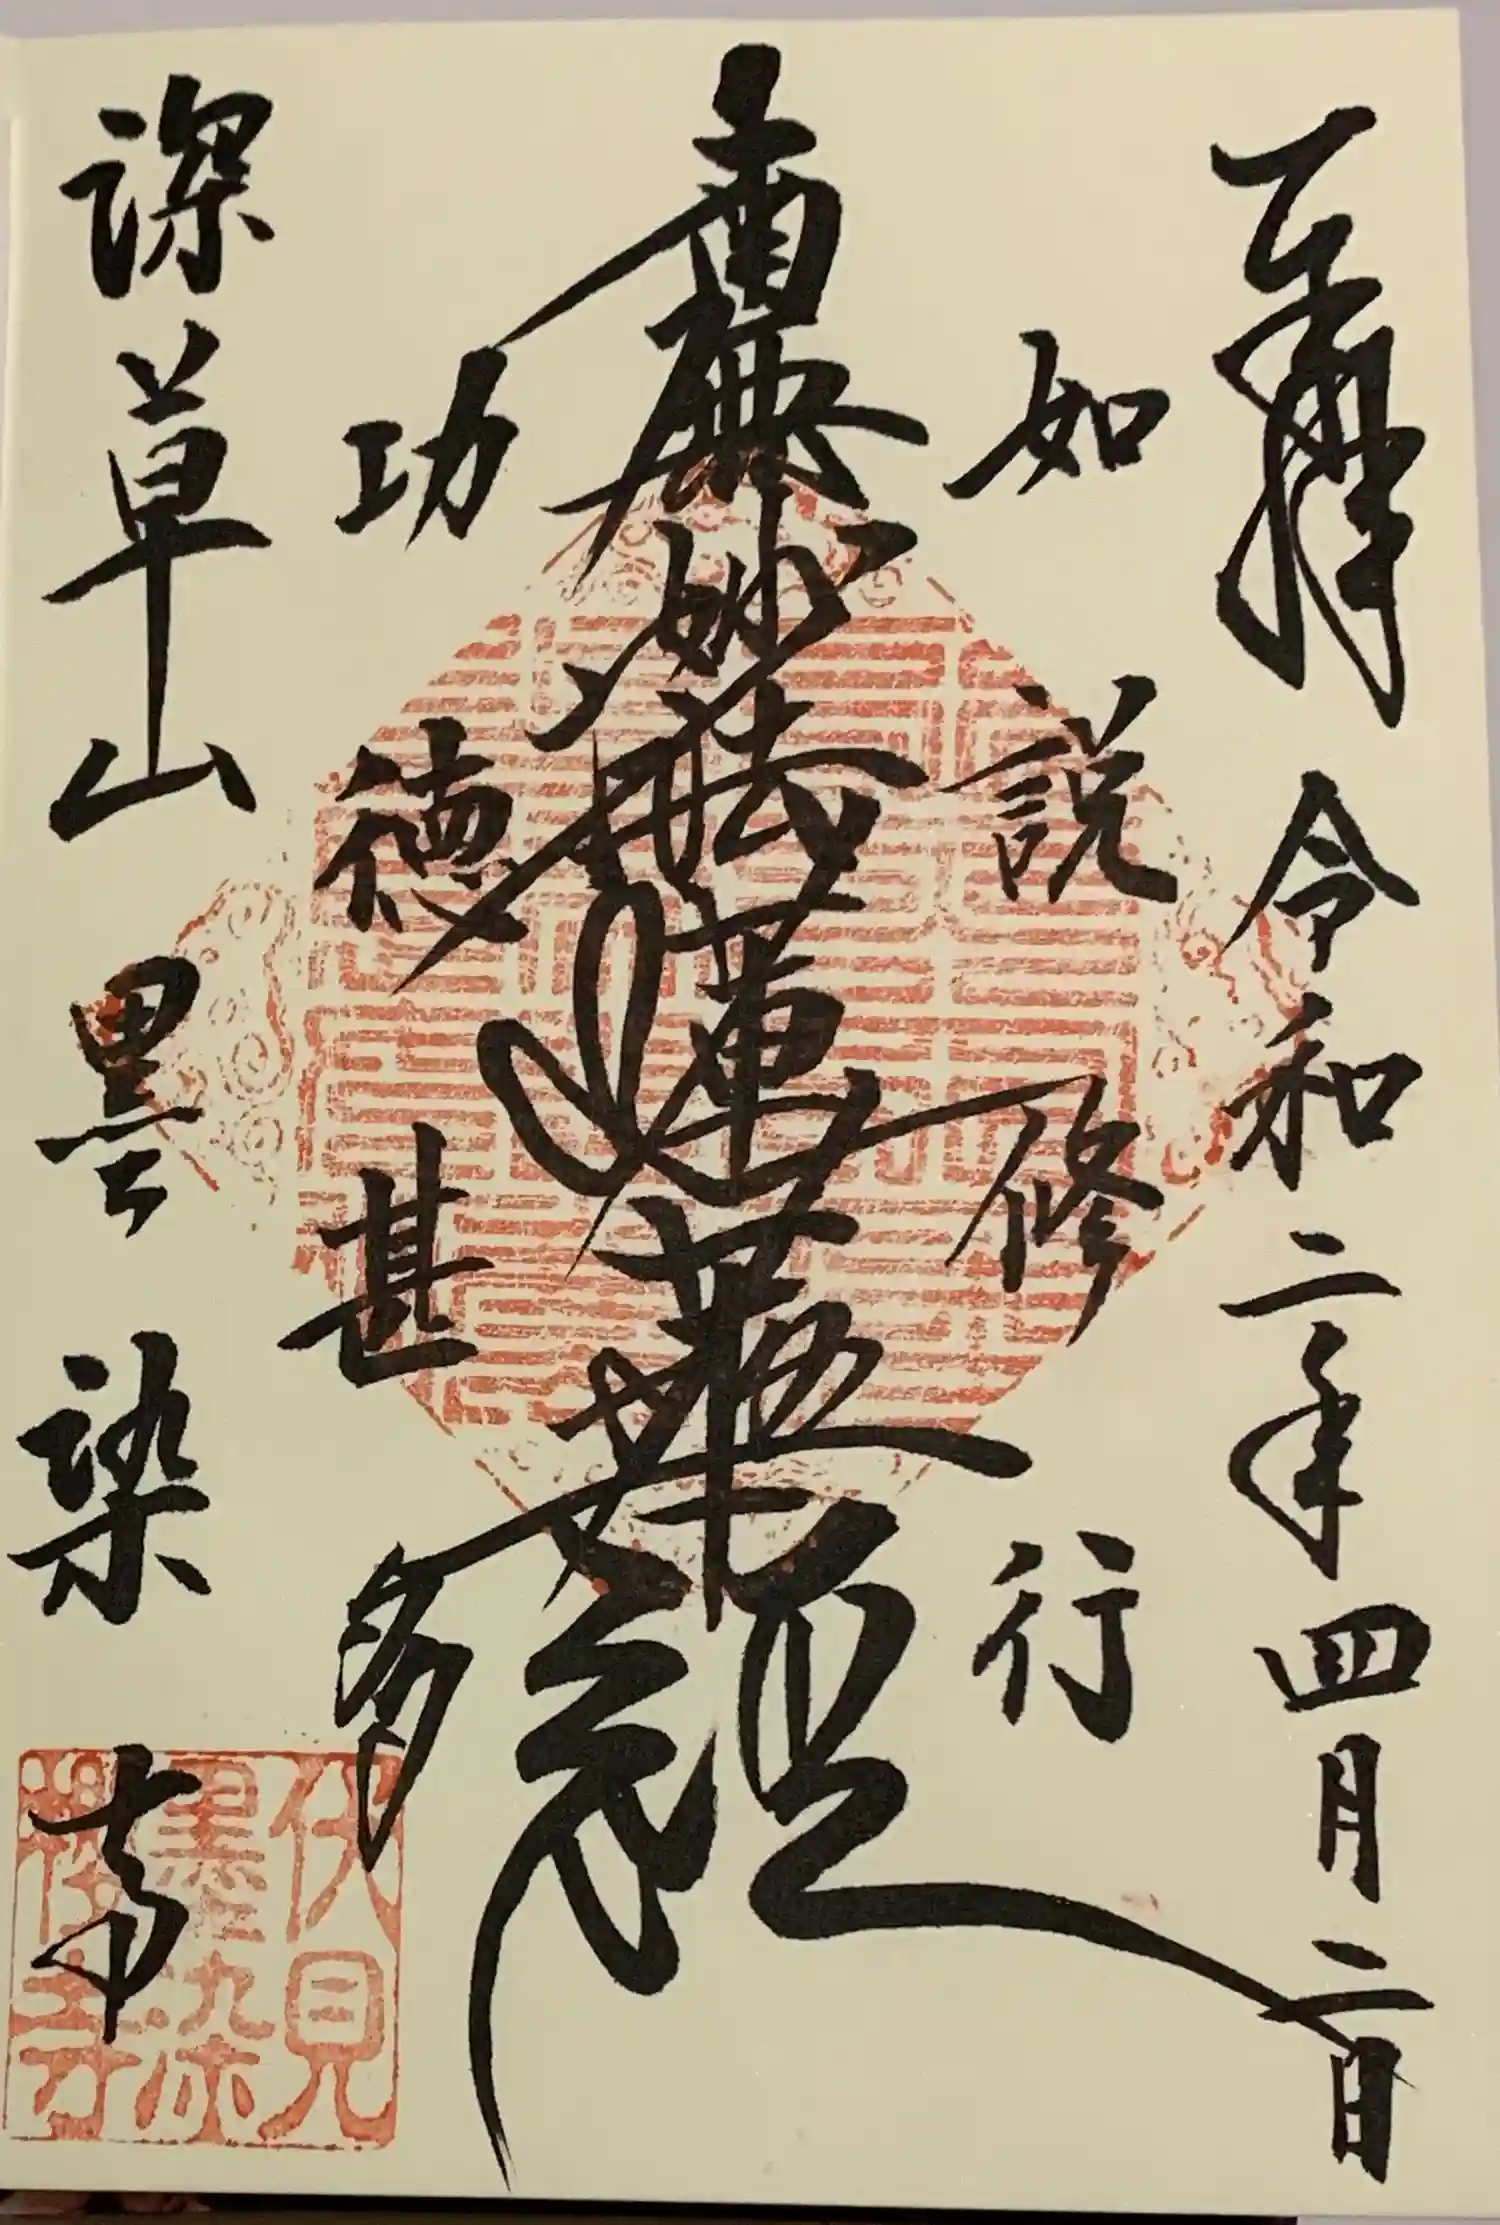 奉拝 令和二年四月二日
如説修行
南無妙法蓮華経
功徳甚多
深草山墨染寺
伏見
墨染
桜寺